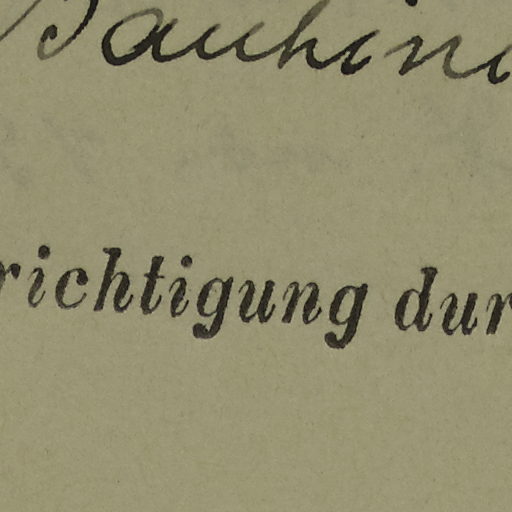 Bauhini
richtigung dur